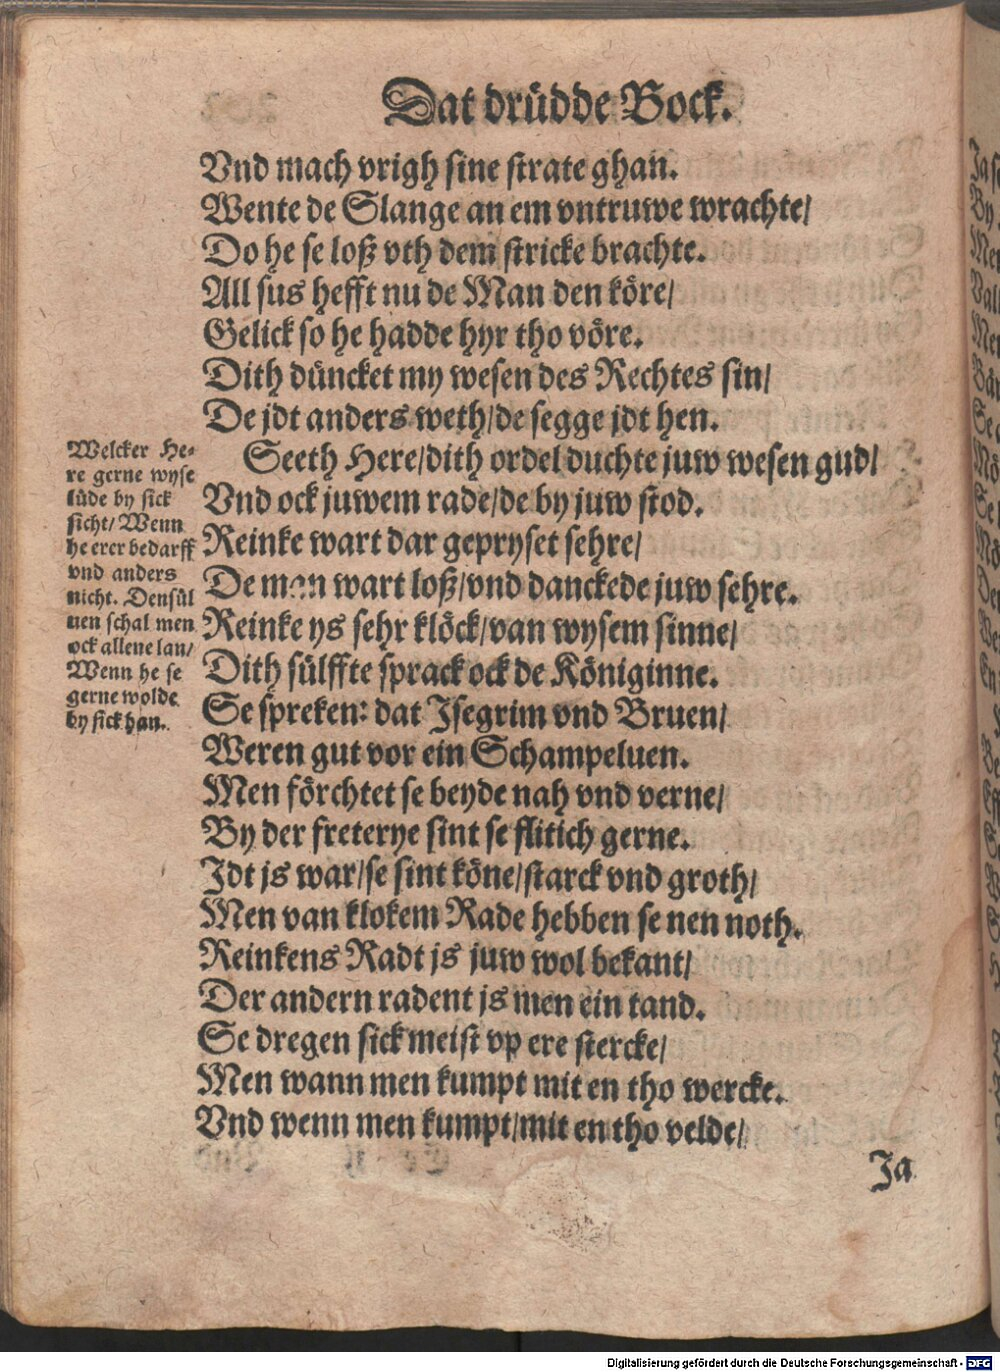 Dat drüdde Bock.
Vnd mach vrigh sine strate ghan.
Wente de Slange an em vntruwe wrachte/
Do he se loß vth dem stricke brachte.
All sus hefft nu de Man den köre/
Gelick so he hadde hyr tho vöre.
Dith düncket my wesen des Rechtes sin/
De jdt anders weth/de segge jdt hen.
Seeth Here/dith ordel duchte juw wesen gud/
Vnd ock juwem rade/de by juw stod.
Reinke wart dar gepryset sehre/
De man wart loß/vnd danckede juw sehre.
Reinke ys sehr klöck/van wysem sinne/
Dith sülffte sprack ock de Königinne.
Se spreken: dat Isegrim vnd Bruen/
Weren gut vor ein Schampeluen.
Men förchtet se beyde nah vnd verne/
By der freterye sint se flitich gerne.
Idt js war/se sint köne/starck vnd groth/
Men van klokem Rade hebben se nen noth.
Reinkens Radt js juw wol bekant/
Der andern radent js men ein tand.
Se dregen sick meist vp ere stercke/
Men wann men kumpt mit en tho wercke.
Vnd wenn men kumpt/mit en tho velde/
Ja
Welcker He-
re gerne wyse
lüde by sick
sicht/ Wenn
he erer bedarff
vnd anders
nicht. Densül
uen schal men
ock allene lan/
Wenn he se
gerne wolde
by sick han.
Digitalisierung gefördert durch die Deutsche Forschungsgemeinschaft - DFG